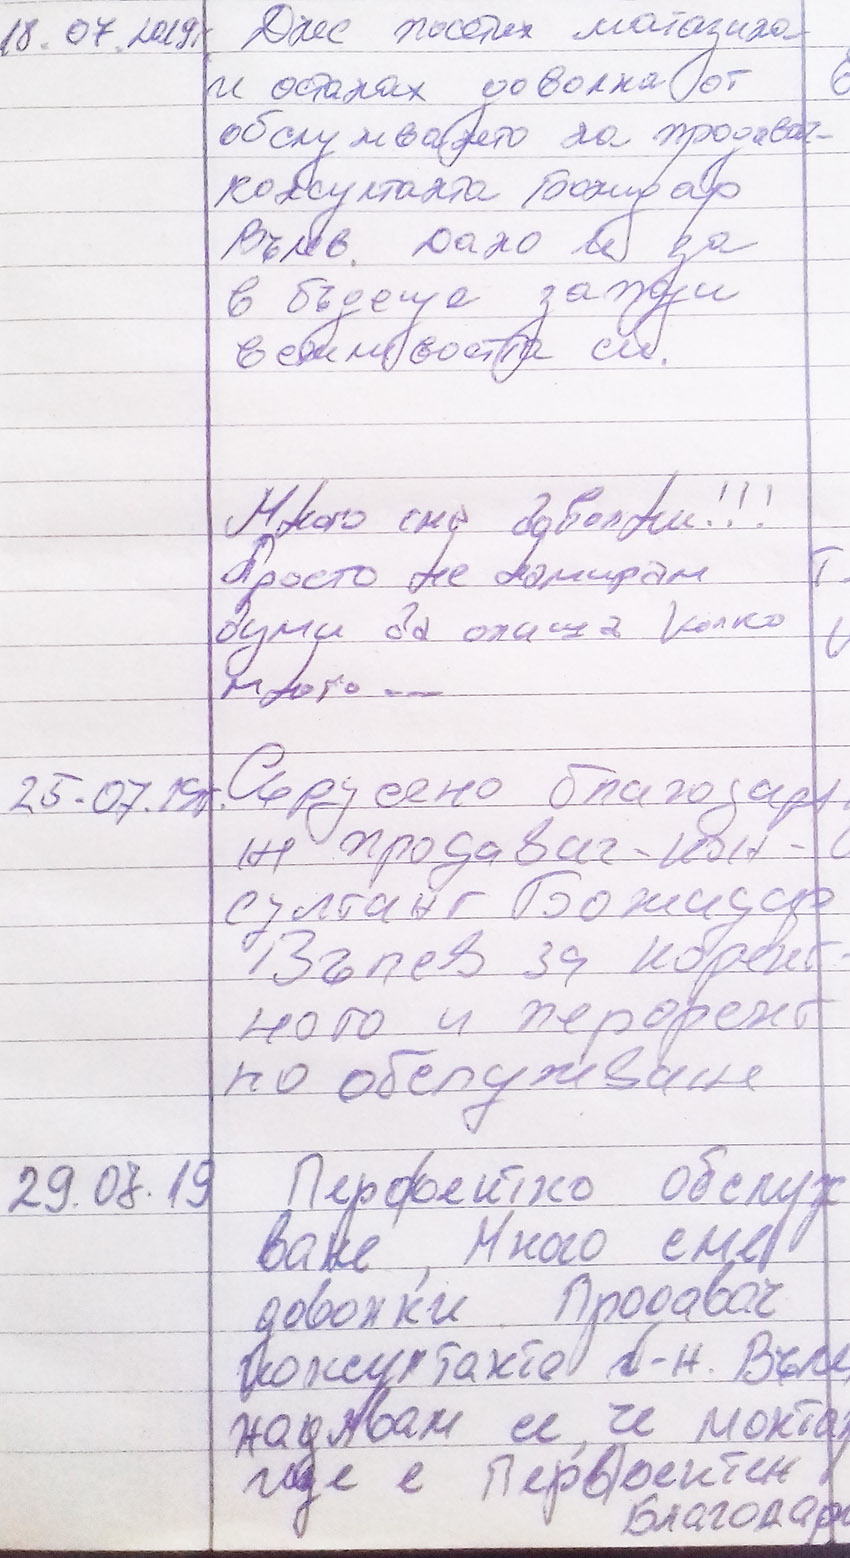 18.07.2019г. Днес посетих магазина
и останах доволна от
обслужването на продавач-
консултанта Божидар
Вълев. Дано и за
в бъдеще запази
вежливостта си.
Много сме доволни!!!
Просто не намирам
думи да опиша колко
много --
25.07.19г. Сърдечно благодаря
на продавач-кон-
султант Божидар
Вълев за корект-
ното и перфект
но обслужване
29.07.19 Перфектно обслуж
ване, Много сме
доволни Продавач
консултанта г-н. Въле
надявам се, че монтаж
ще е Перфектен
Благодаря